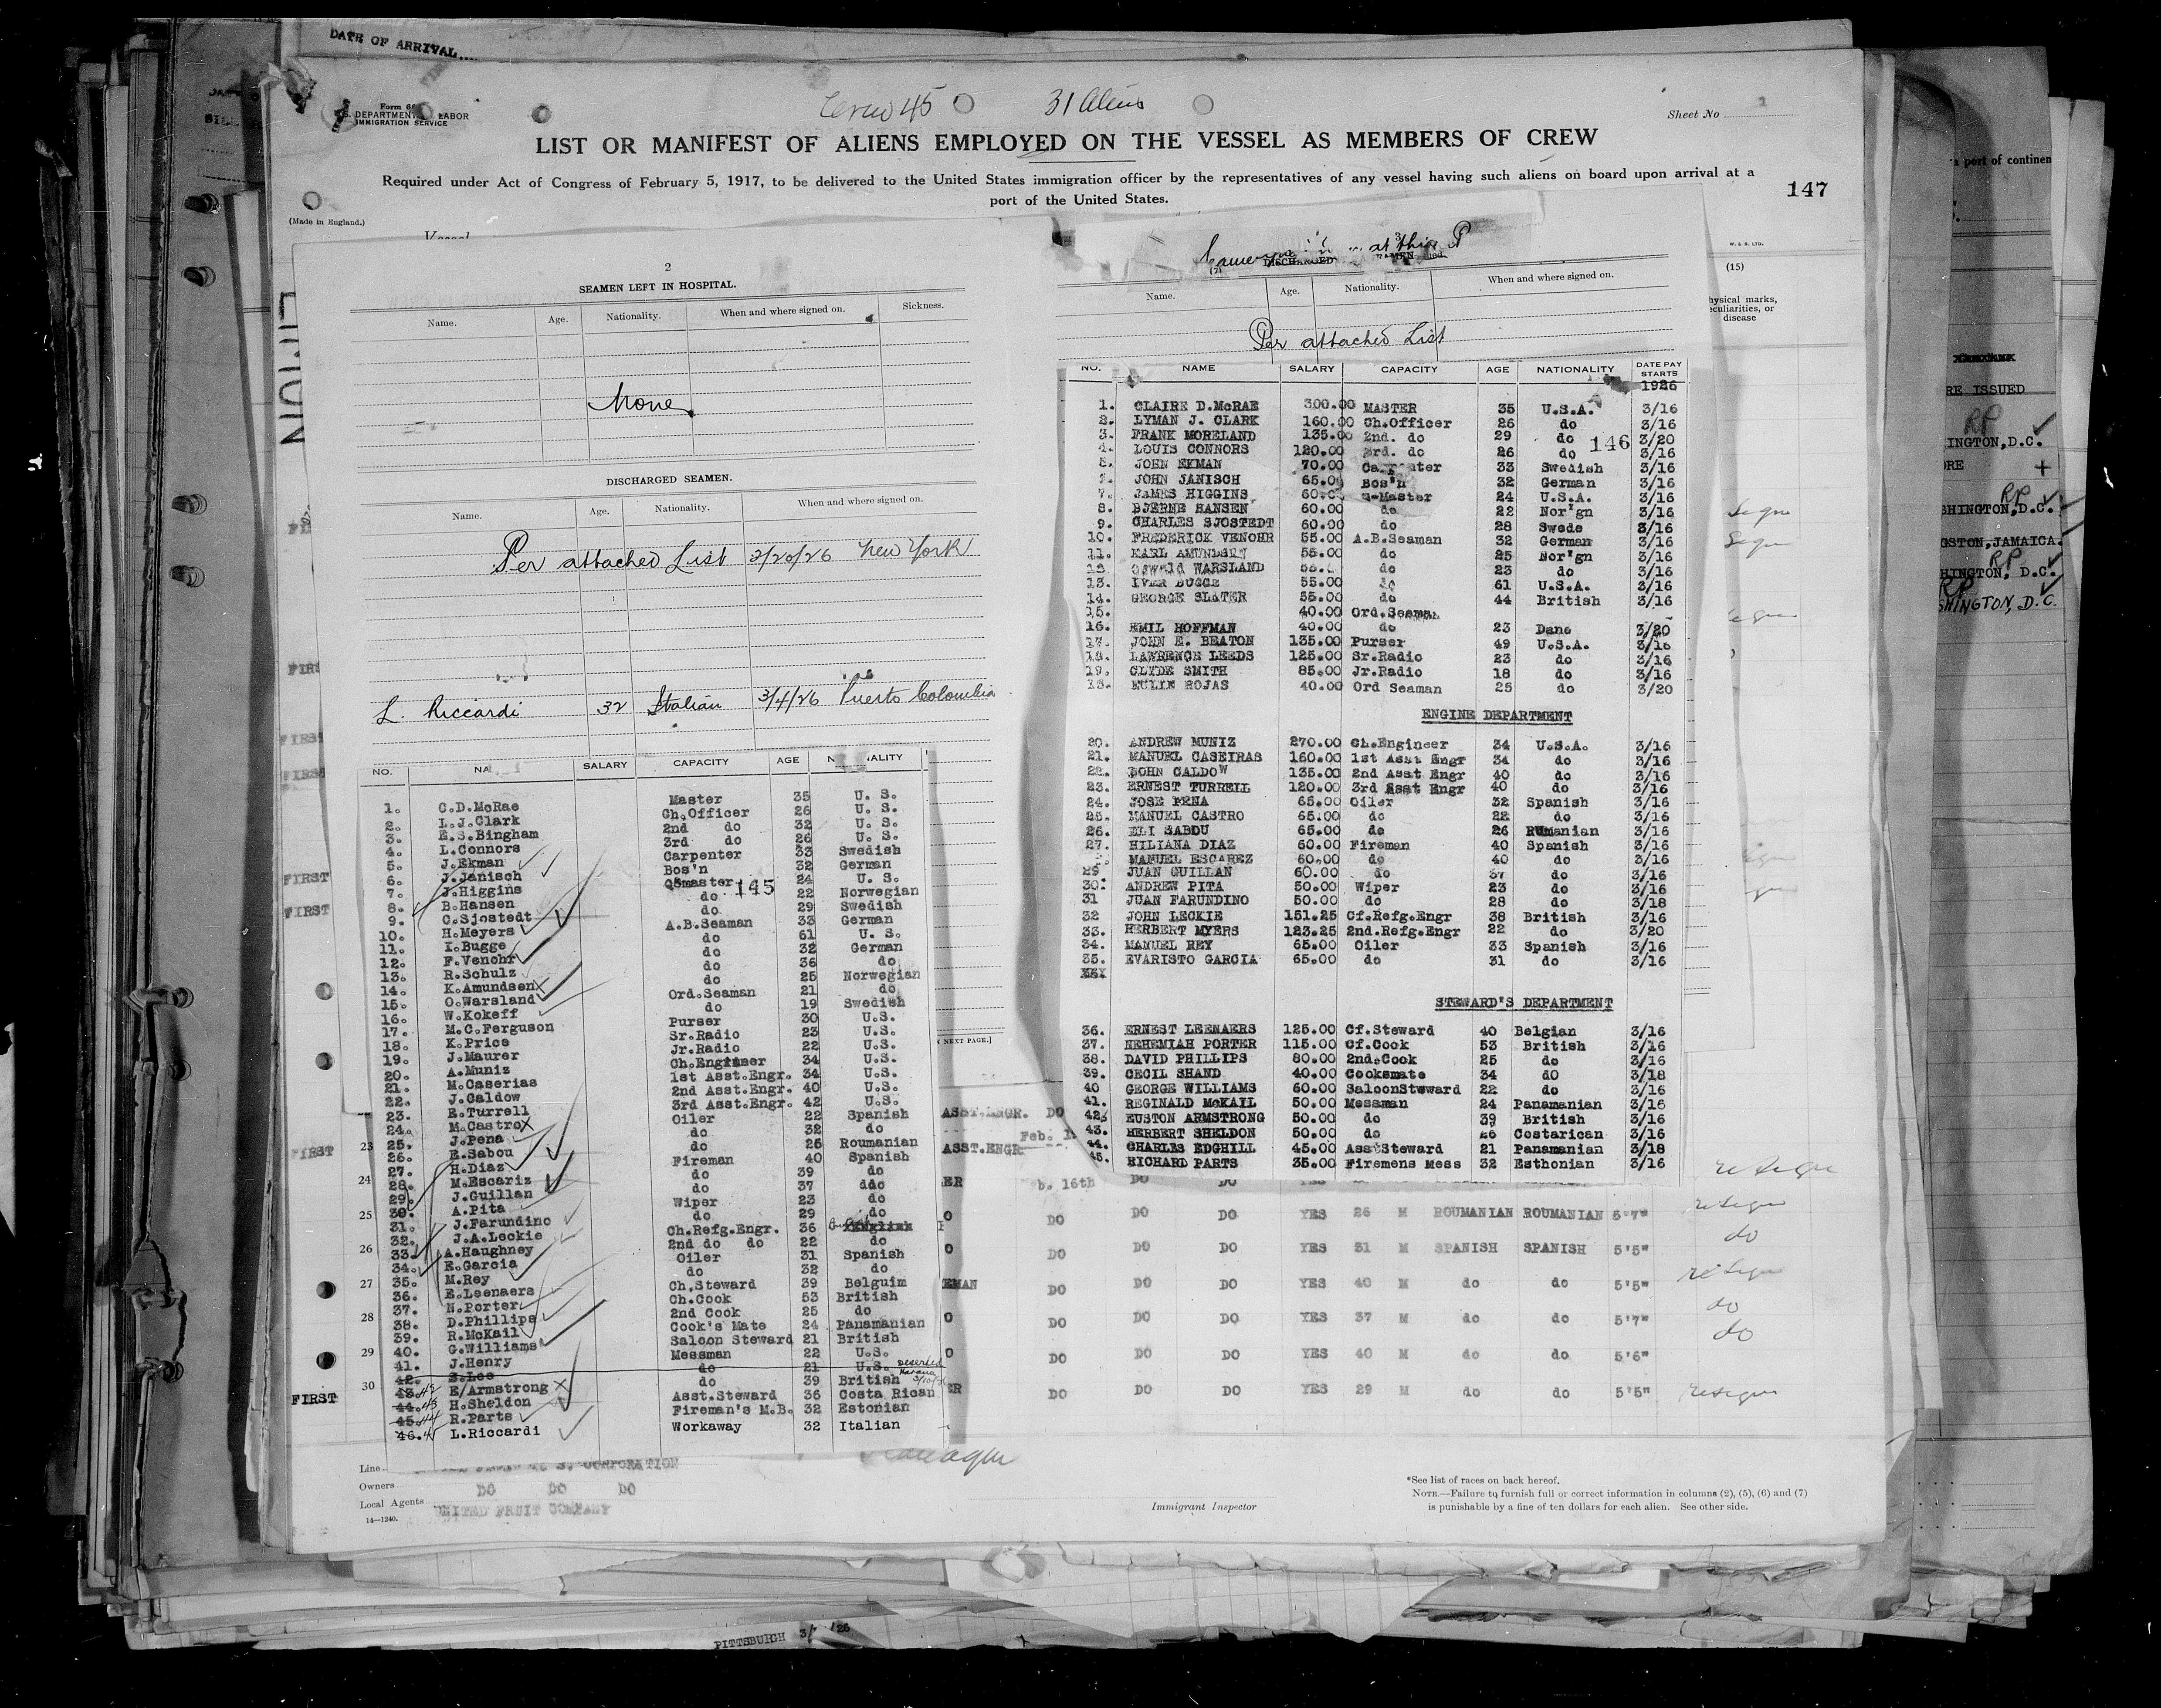 DATE OF ARRIVAL....
Form 6
U.S. DEPARTMENT LABOR
IMMIGRATION SERVICE
Crew 45 31 Aliens
Sheet No 1
LIST OR MANIFEST OF ALIENS EMPLOYED ON THE VESSEL AS MEMBERS OF CREW
Required under Act of Congress of February 5, 1917, to be delivered to the United States immigration officer by the representatives of any vessel having such aliens on board upon arrival at a
port of the United States.
147
(Made in England.)
2
SEAMEN LEFT IN HOSPITAL.
Name. Age. Nationality. When and where signed on. Sickness.
None
DISCHARGED SEAMEN.
Name. Age. Nationality. When and where signed on.
Per attached List 3/20/26 New York
L. Riccardi 32 Italian 3/4/26 Puerto Colombia
NO. NA SALARY CAPACITY AGE N ALITY
1. C.D.McRae Master 35 U. S.
2. L.J.Clark Ch.Officer 26 U. S.
3. E.S.Bingham 2nd do 32 U. S.
4. L.Connors 3rd do 26 U. S.
5. J.Ekman Carpenter 33 Swedish
6. J.Janisch Bos'n 32 German
7. J.Higgins Q'master 24 U. S.
145
8. B.Hansen do 22 Norwegian
9. C.Sjostedt do 29 Swedish
10. H.Meyers A.B.Seaman 33 German
11. I.Bugge do 61 U. S.
12. F.Venohr do 32 German
13. R.Schulz do 36 do
14. K.Amundsen do 25 Norwegian
15. O.Warsland Ord.Seaman 21 do
16. W.Kokeff do 19 Swedish
17. M.C.Ferguson Purser 30 U.S.
18. K.Price Sr.Radio 23 U.S.
19. J.Maurer Jr.Radio 22 U.S.
20. A.Muniz Ch.Engineer 34 U.S.
21. M.Caserias 1st Asst.Engr. 34 U.S.
22. J.Caldow 2nd Asst.Engr. 40 U.S.
23. E.Turrell 3rd Asst.Engr. 42 U.S.
24. M.Castro Oiler 22 Spanish
25. J.Pena do 32 do
26. E.Sabou do 26 Roumanian
27. H.Diaz Fireman 40 Spanish
28. M.Escariz do 39 do
29. J.Guillan do 37 ddo
30. A.Pita Wiper 23 do
31. J.Farundino do 29 do
32. J.A.Leckie Ch.Refg.Engr. 36
33. A.Haughney 2nd do do 22 do
34. E.Garcia Oiler 31 Spanish
35. M.Rey do 32 do
36. E.Leenaers Ch.Steward 39 Belguim
37. N.Porter Ch.Cook 53 British
38. D.Phillips 2nd Cook 25 do
39. R.McKail Cook's Mate 24 Panamanian
40. G.Williams Saloon Steward 21 British
41. J.Henry Messman 22 U.S.
42. S.Lee do 21 U.S. Deserted Havana
43. 42 E/Armstrong do 39 British
44. 43 H.Sheldon Asst.Steward 36 Costa Rican
45. 44 R.Parts Fireman's M.B. 32 Estonian
46. L.Riccardi Workaway 32 Italian
at this P
DISCHARGED
Name. Age. Nationality. When and where signed on.
Per attached List
NO. NAME SALARY CAPACITY AGE NATIONALITY DATE PAY STARTS
1926
1. CLAIRE D.McRAE 300.00 MASTER 35 U.S.A. 3/16
2. LYMAN J. CLARK 160.00 Ch.Officer 26 do 3/16
3. FRANK MORELAND 135.00 2nd. do 29 do 3/20
146
4. LOUIS CONNORS 120.00 3rd. do 26 do 3/16
5. JOHN EKMAN 70.00 Carpenter 33 Swedish 3/16
JOHN JANISCH 65.00 Bos'n 32 German 3/16
7. JAMES HIGGINS 60.0 Q-Master 24 U.S.A. 3/16
8. BJERNE HANSEN 60.00 do 22 Nor'gn 3/16
9. CHARLES SJOSTEDT 60.00 do 28 Swede 3/16
10. FREDERICK VENOHR 55.00 A.B.Seaman 32 German 3/16
11. KARL AMUNDSEN 55.00 do 25 Nor'gn 3/16
Oswald WARSLAND do 23 do 3/16
13. IVER BUGGE 55.00 do 61 U.S.A. 3/16
14. GEORGE SLATER 55.00 do 44 British 3/16
15. 40.00 Ord.Seaman
16. EMIL HOFFMAN 40.00 do 23 Dane 3/20
17. JOHN E. BEATON 135.00 Purser 49 U.S.A. 3/16
18. LAWRENCE LEEDS 125.00 Sr.Radio 23 do 3/16
19. CLYDE SMITH 85.00 Jr.Radio 18 do 3/16
EULIE ROJAS 40.00 Ord Seaman 25 do 3/20
ENGINE DEPARTMENT
20. ANDREW MUNIZ 270.00 Ch.Engineer 34 U.S.A. 3/16
21. MANUEL CASEIRAS 160.00 1st Asst Engr 34 do 3/16
22. JOHN CALDOW 135.00 2nd Asst Engr 40 do 3/16
23. ERNEST TURRELL 120.00 3rd Asst Engr 40 do 3/16
24. JOSE PENA 65.00 Oiler 32 Spanish 3/16
25. MANUEL CASTRO 65.00 do 22 do 3/16
26. ELI SABOU 65.00 do 26 RUmanian 3/16
27. HILIANA DIAZ 60.00 Fireman 40 Spanish 3/16
MANUEL ESCAREZ 60.00 do 40 do 3/16
29 JUAN GUILLAN 60.00 do 37 do 3/16
30. ANDREW PITA 50.00 Wiper 23 do 3/16
31 JUAN FARUNDINO 50.00 do 28 do 3/18
32 JOHN LECKIE 151.25 Cf.Refg.Engr 38 British 3/16
33. HERBERT MYERS 123.25 2nd.Refg.Engr 22 do 3/20
34. MANUEL REY 65.00 Oiler 33 Spanish 3/16
35. EVARISTO GARCIA 65.00 do 31 do 3/16
STEWARD'S DEPARTMENT
36. ERNEST LEENAERS 125.00 Cf.Steward 40 Belgian 3/16
37. NEHEMIAH PORTER 115.00 Cf.Cook 53 British 3/16
38. DAVID PHILLIPS 80.00 2nd.Cook 25 do 3/16
39. CECIL SHAND 40.00 Cooksmate 34 dO 3/18
40 GEORGE WILLIAMS 60.00 SaloonSteward 22 do 3/16
41. REGINALD McKAIL 50.00 Messman 24 Panamanian 3/16
42. EUSTON ARMSTRONG 50.00 do 39 British 3/16
43. HERBERT SHELDON 50.00 do 26 Costarican 3/16
44. CHARLES EDGHILL 45.00 AsstSteward 21 Panamanian 3/18
45. RICHARD PARTS 35.00 Firemens Mess 32 Esthonian 3/16
W. & S. LTD.
(15)
hysical marks,
eculiarities, or
disease
a port of continen
RE ISSUED
RP
INGTON,D.C.
ORE +
RP
SHINGTON,D.C.
GSTON,JAMAICA.
RP
HINGTON, D.C.
RP
SHINGTON, D.C.
FIRST
FIRST
FIRST
FIRST
FIRST
N NEXT PAGE.]
23 ASST.ENGR. DO
Feb. 1
24 ASST.ENGR
ER b. 16th DO DO YES
25 O DO DO DO YES 26 M ROUMANIAN ROUMANIAN 5'7"
26 O DO DO DO YES 31 M SPANISH SPANISH 5'5" do
27 EMAN DO DO DO YES 40 M do do 5'5"
28 O DO DO DO YES 37 M do do 5'7" do
do
29 O DO DO DO YES 40 M do do 5'6"
30 ER DO DO DO YES 29 M do do 5'5"
Line S. CORPORATION
Owners DO DO DO
Local Agents UNITED FRUIT COMPANY
14—1240.
Immigrant Inspector
*See list of races on back hereof.
NOTE.—Failure to furnish full or correct information in columns (2), (5), (6) and (7)
is punishable by a fine of ten dollars for each alien. See other side.
PITTSBURGH 3/ '26